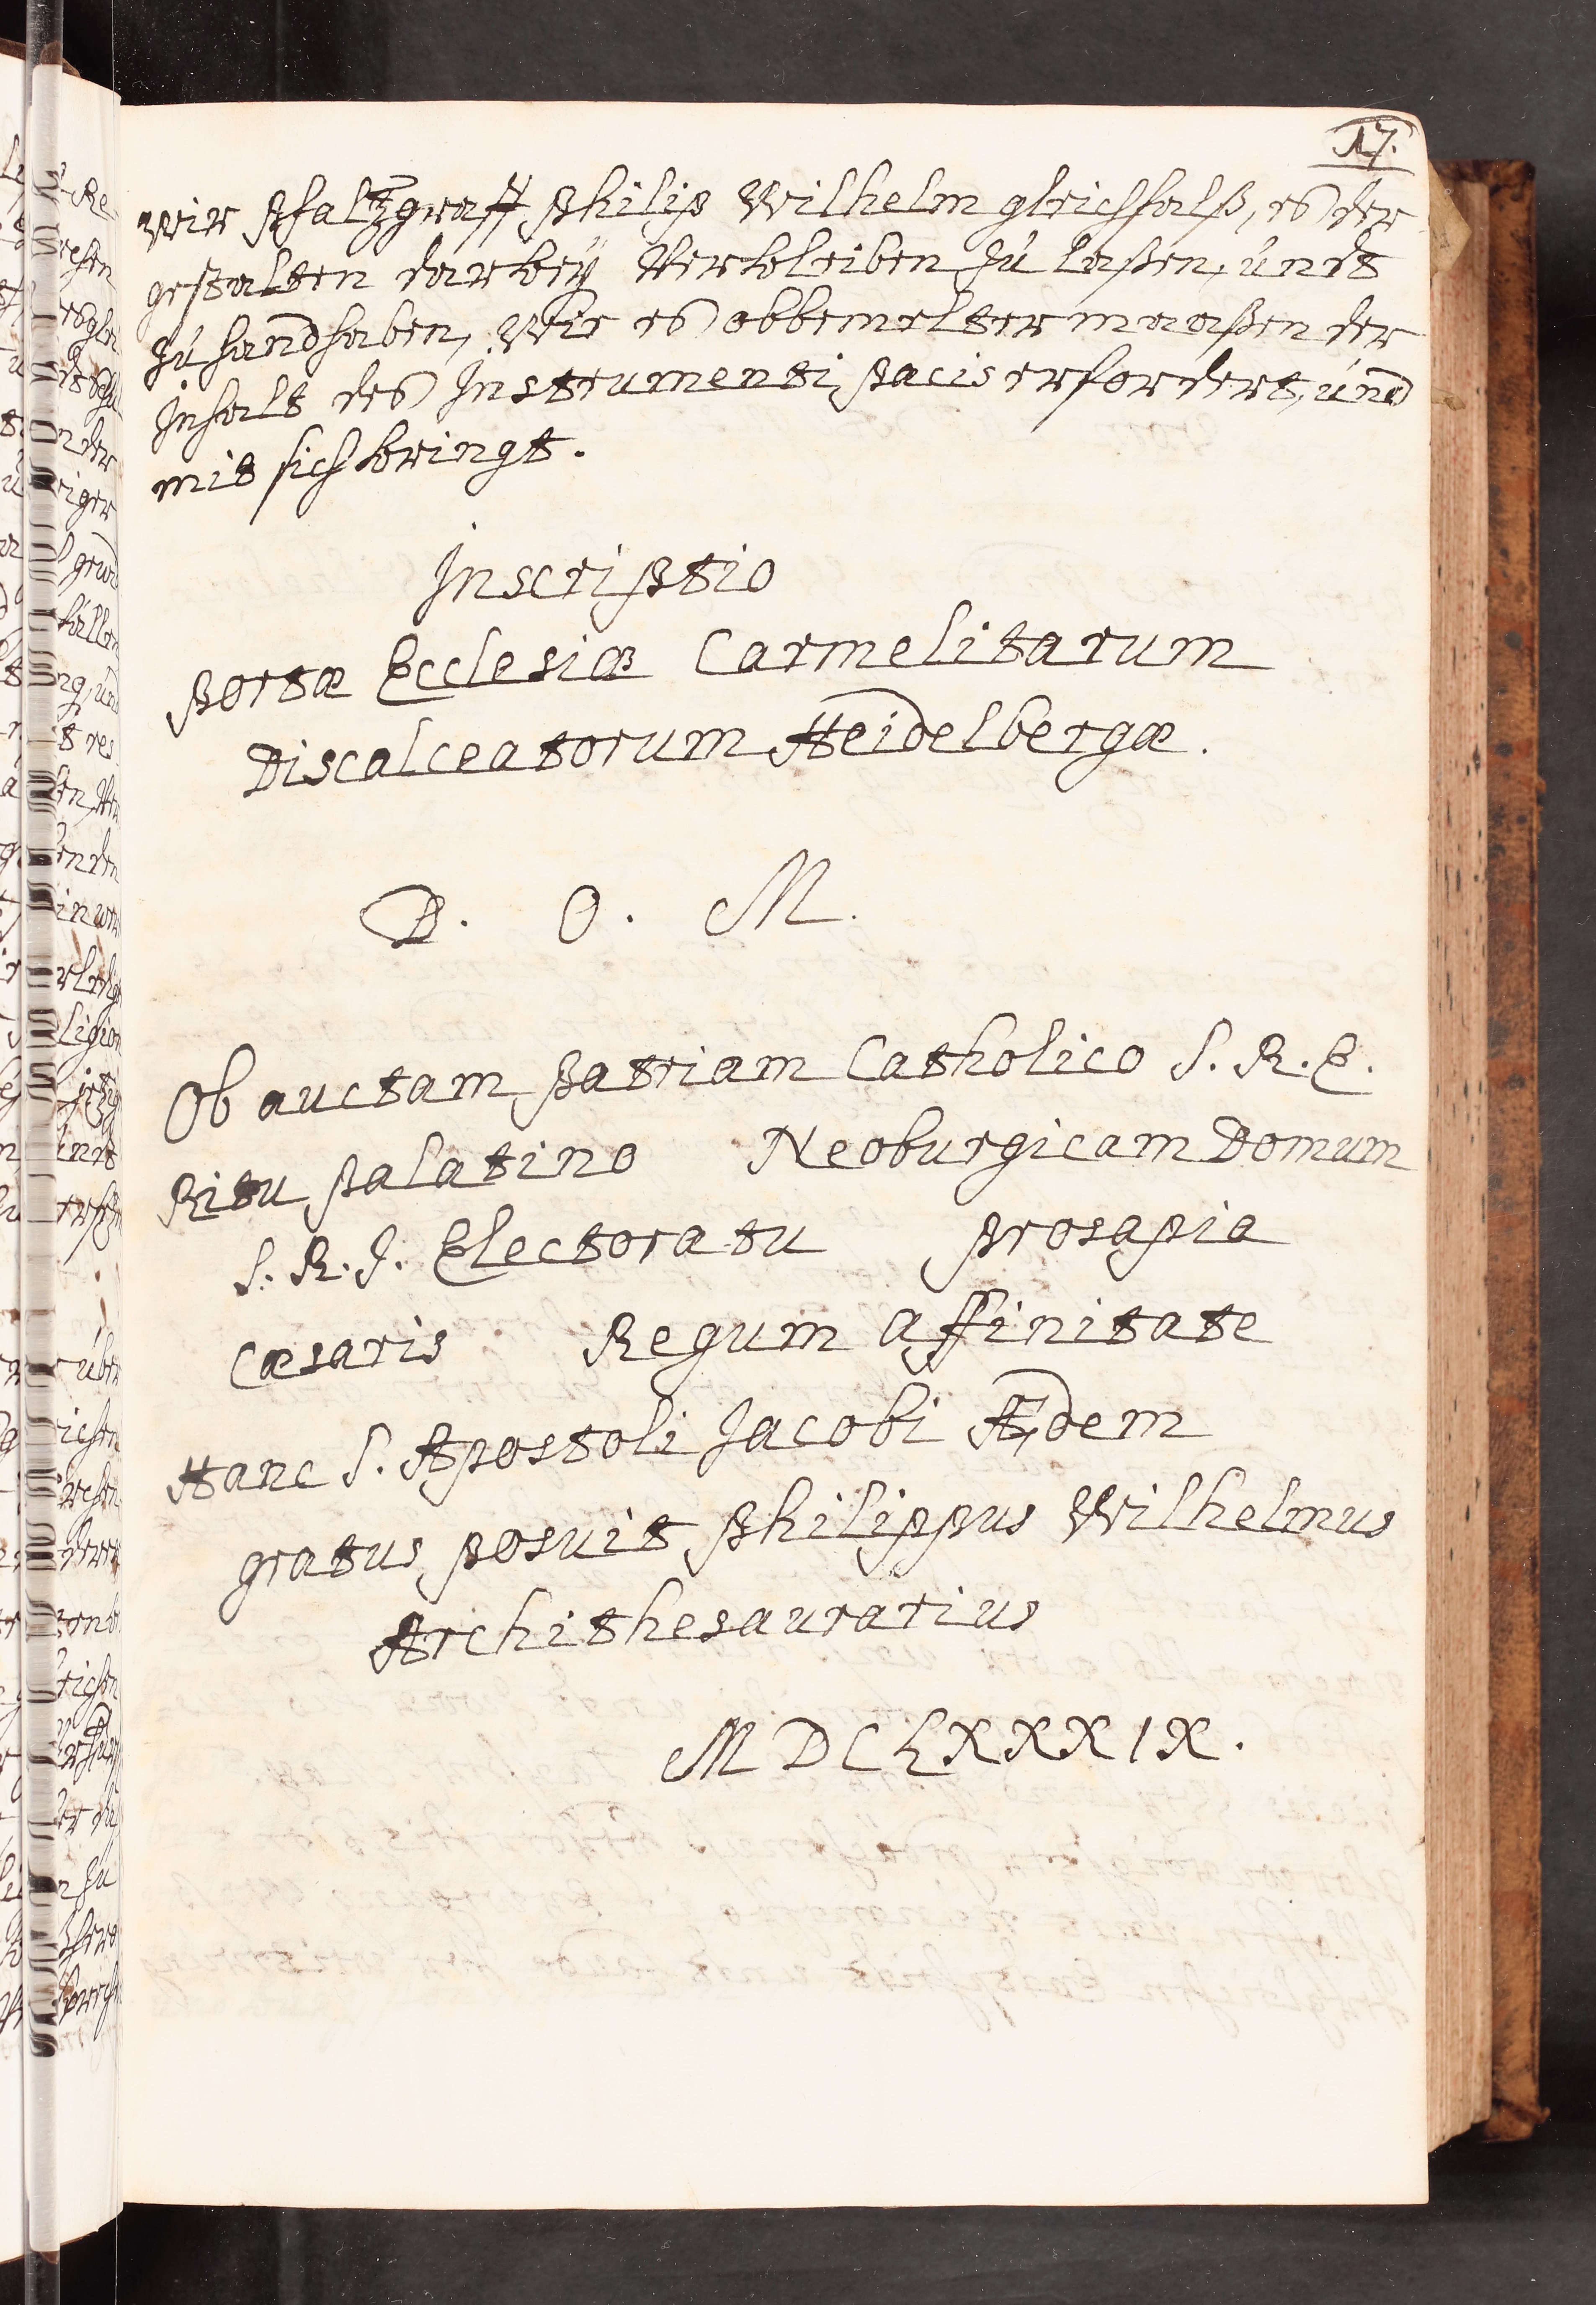 17.
wir Pfaltzgraff Philip Wilhelm gleichfalß, es der
gestalten darbeÿ Verbleiben zu laßen, undt
zu handhaben, Wie es obbemelter maaßen der
Inhalt des Instrumenti pacis erfordert, und
mit sich bringt.
Inscriptio
portæ Ecclesiæ Carmelitarum
Discalceatorum Heidelbergæ.
D. O. M.
Ob auctam patriam Catholico S. R. E.
Ritu palatino Neoburgicam Domum
S. R. I. Electoratu prosapia
Cæsaris Regum affinitate
Hanc S. Apostoli Jacobi Ædem
gratus posuit Philippus Wilhelmus
Archithesaurarius
MDCLXXXIX.